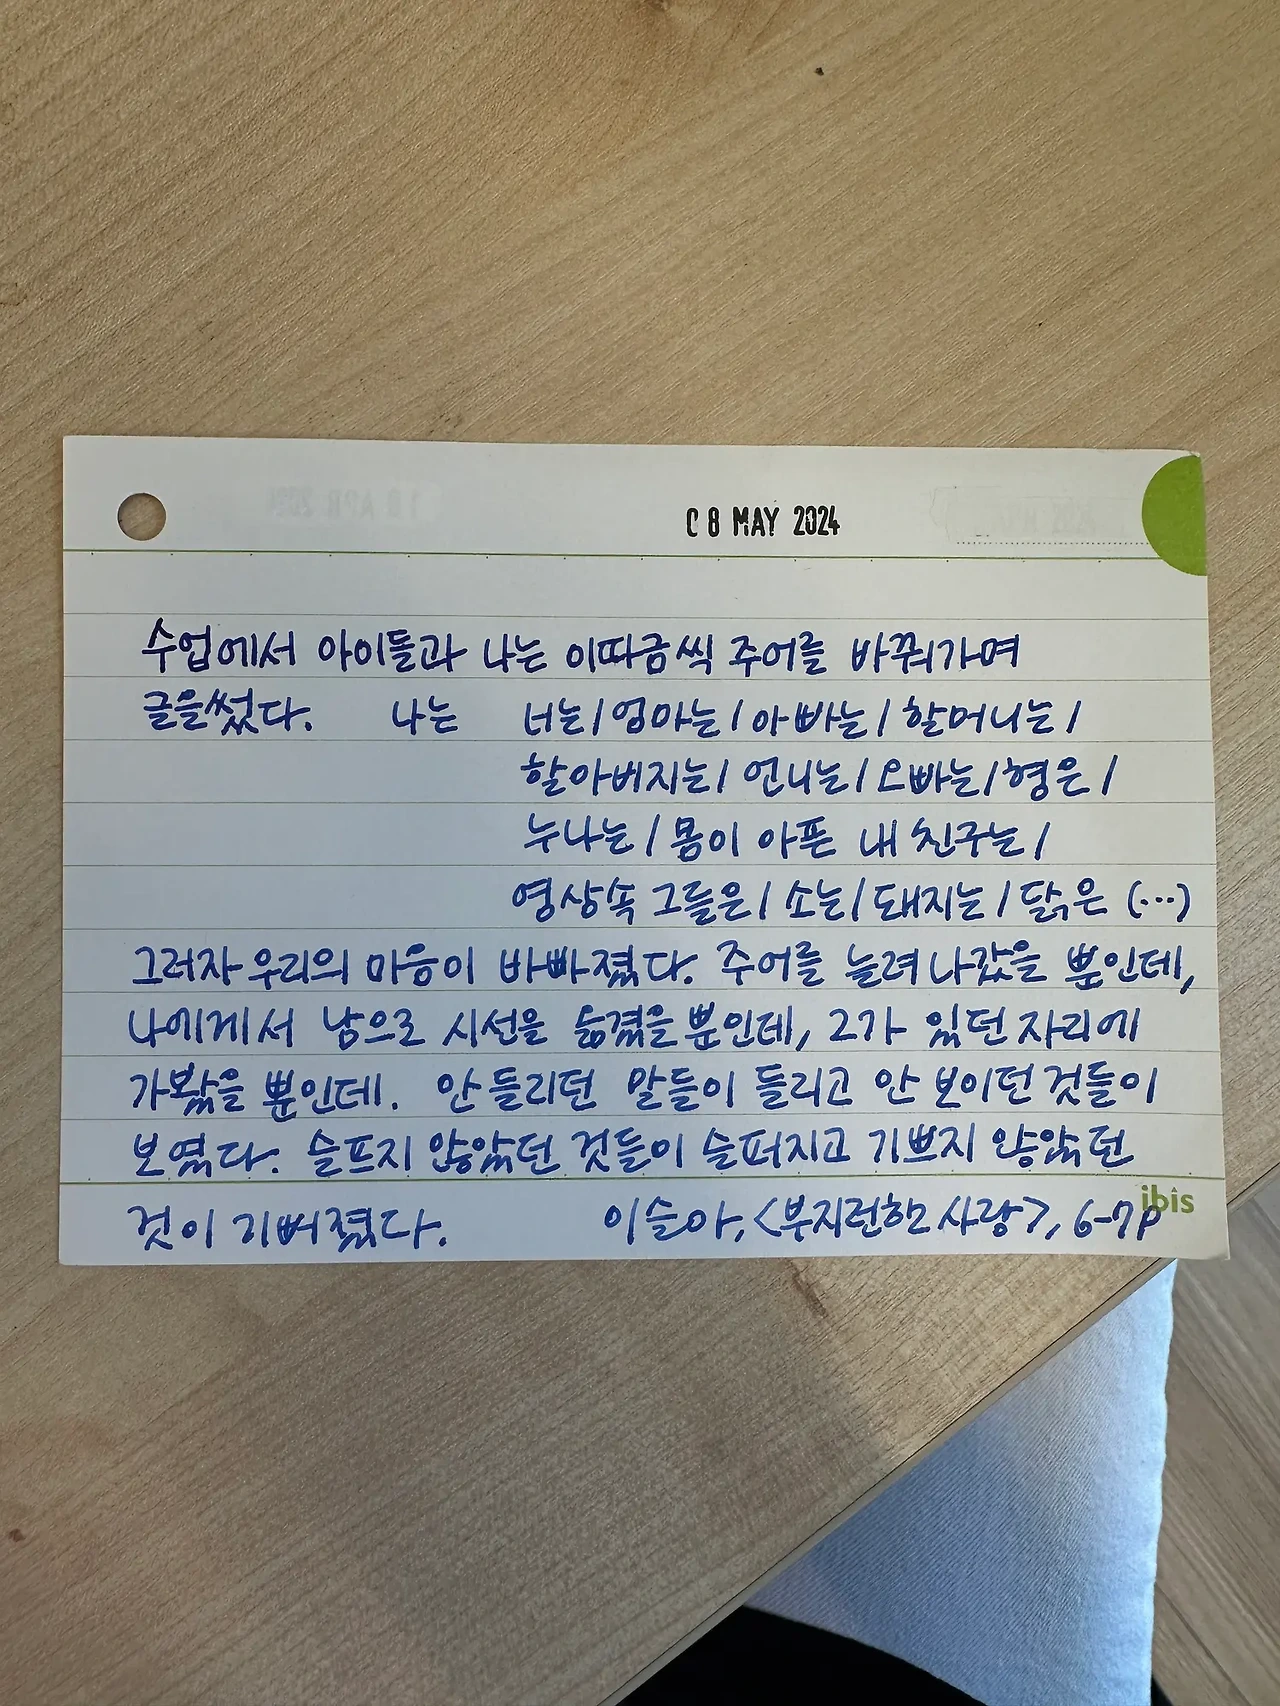 08 MAY 2024
수업에서 아이들과 나는 이따금씩 주어를 바꿔가며
글을 썼다. 나는 너는/엄마는/아빠는/할머니는/
할아버지는/ 언니는/오빠는/형은/
누나는/몸이 아픈 내 친구는/
영상속 그들은/소는/돼지는/닭은 (…)
그러자 우리의 마음이 바빠졌다. 주어를 늘려나갔을 뿐인데,
나에게서 남으로 시선을 옮겼을 뿐인데, 그가 있던 자리에
가봤을 뿐인데. 안 들리던 말들이 들리고 안 보이던 것들이
보였다. 슬프지 않았던 것들이 슬퍼지고 기쁘지 않았던
것이 기뻐졌다. 이슬아, <부지런한 사랑>, 6-7p
ibis